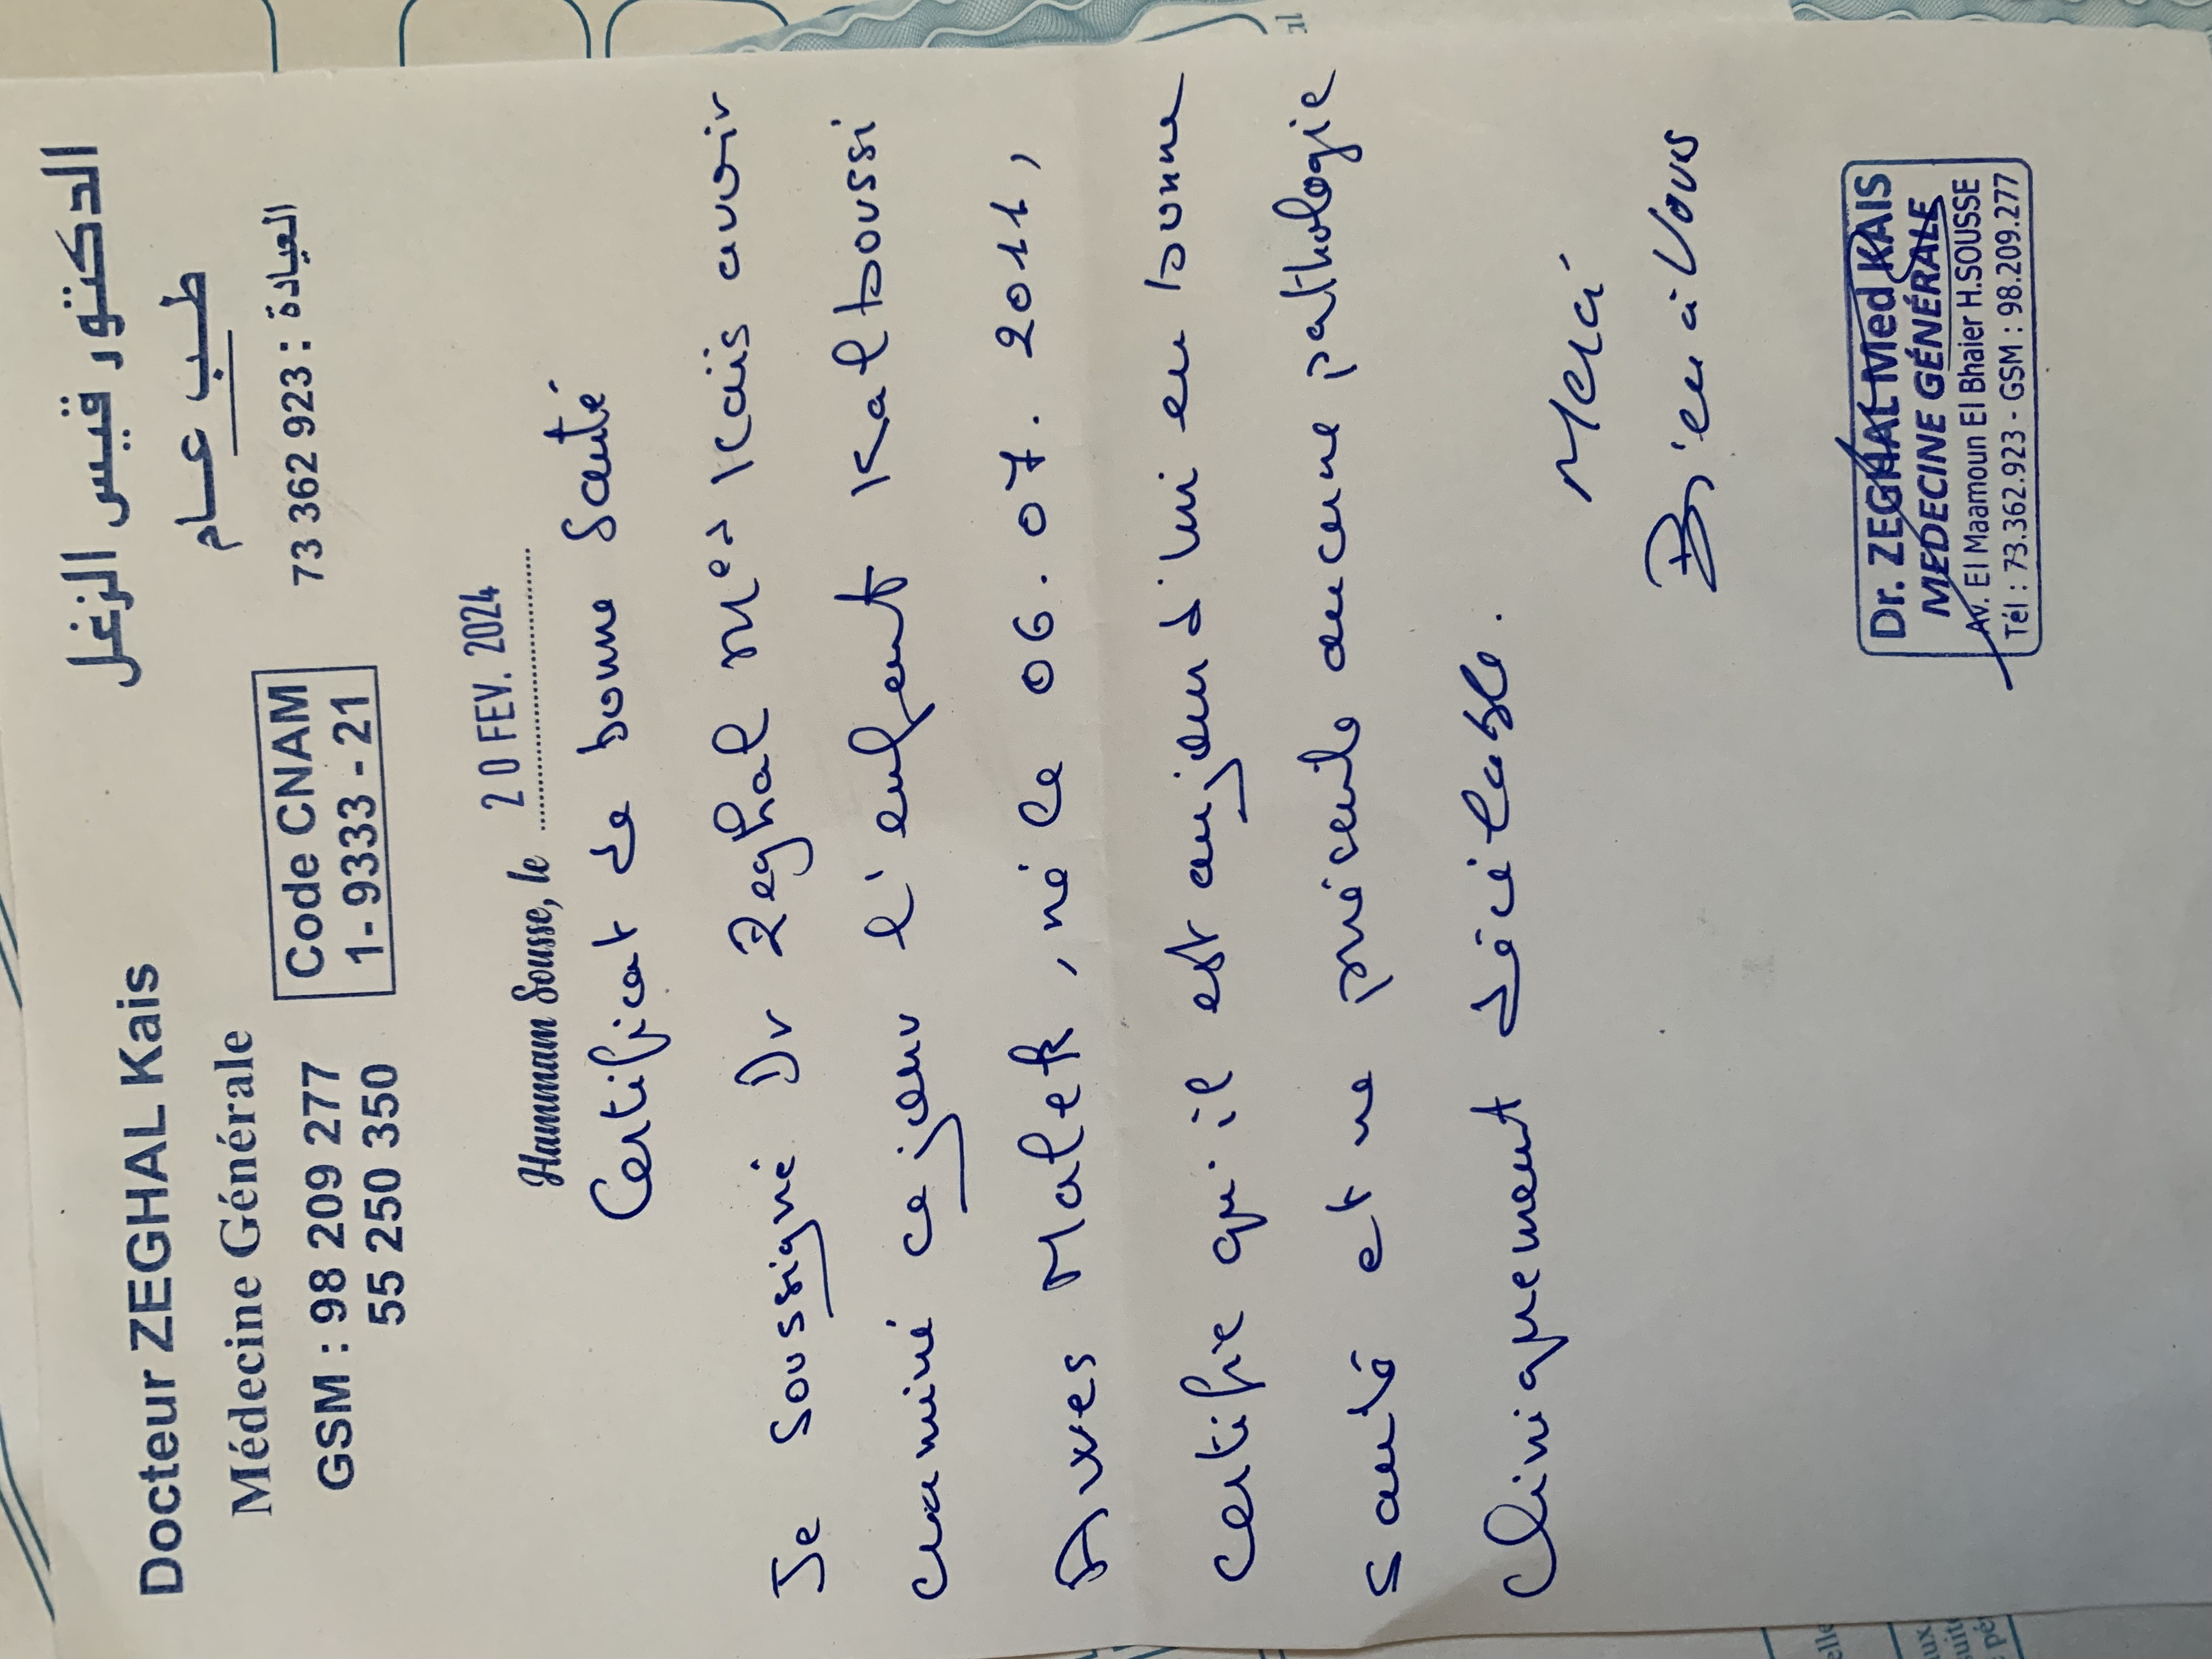 Docteur ZEGHAL Kais
الدكتور قيس الزغل
Médecine Générale
طب عام
GSM : 98 209 277
55 250 350
Code CNAM
1- 9333 - 21
العيادة : 73 362 923
Hammam Sousse, le 20 FEV. 2024
Certificat de bonne Santé
Je Soussigné Dr Zeghal Med Kais avoir
examiné ce jour l'enfant Kalboussi
Malek, né le 06.07.2011,
certifie qu'il est aujourd'hui en bonne
santé et ne présente aucune pathologie
cliniquement décelable.
Merci
Bien à Vous
Dr. ZEGHAL Med KAIS
MEDECINE GÉNÉRALE
Av. El Maamoun El Bhaier H.SOUSSE
Tél : 73.362.923 - GSM : 98.209.277